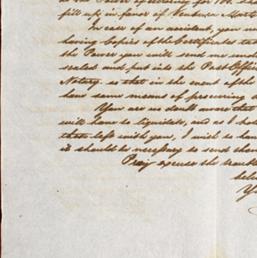 as the Power of Attorney for the
fill up in favor of
In case of an accident, you
having Copies of the Certificate
the Power you will send me
sealed and put into the Post Office
Notary, so that in the event of the
have some means of procuring
You are no doubt aware that
will have to liquidate, and as I
those left with you, I wish to
it should be necessary to send them
Pray excuse the trouble
belie
Yo